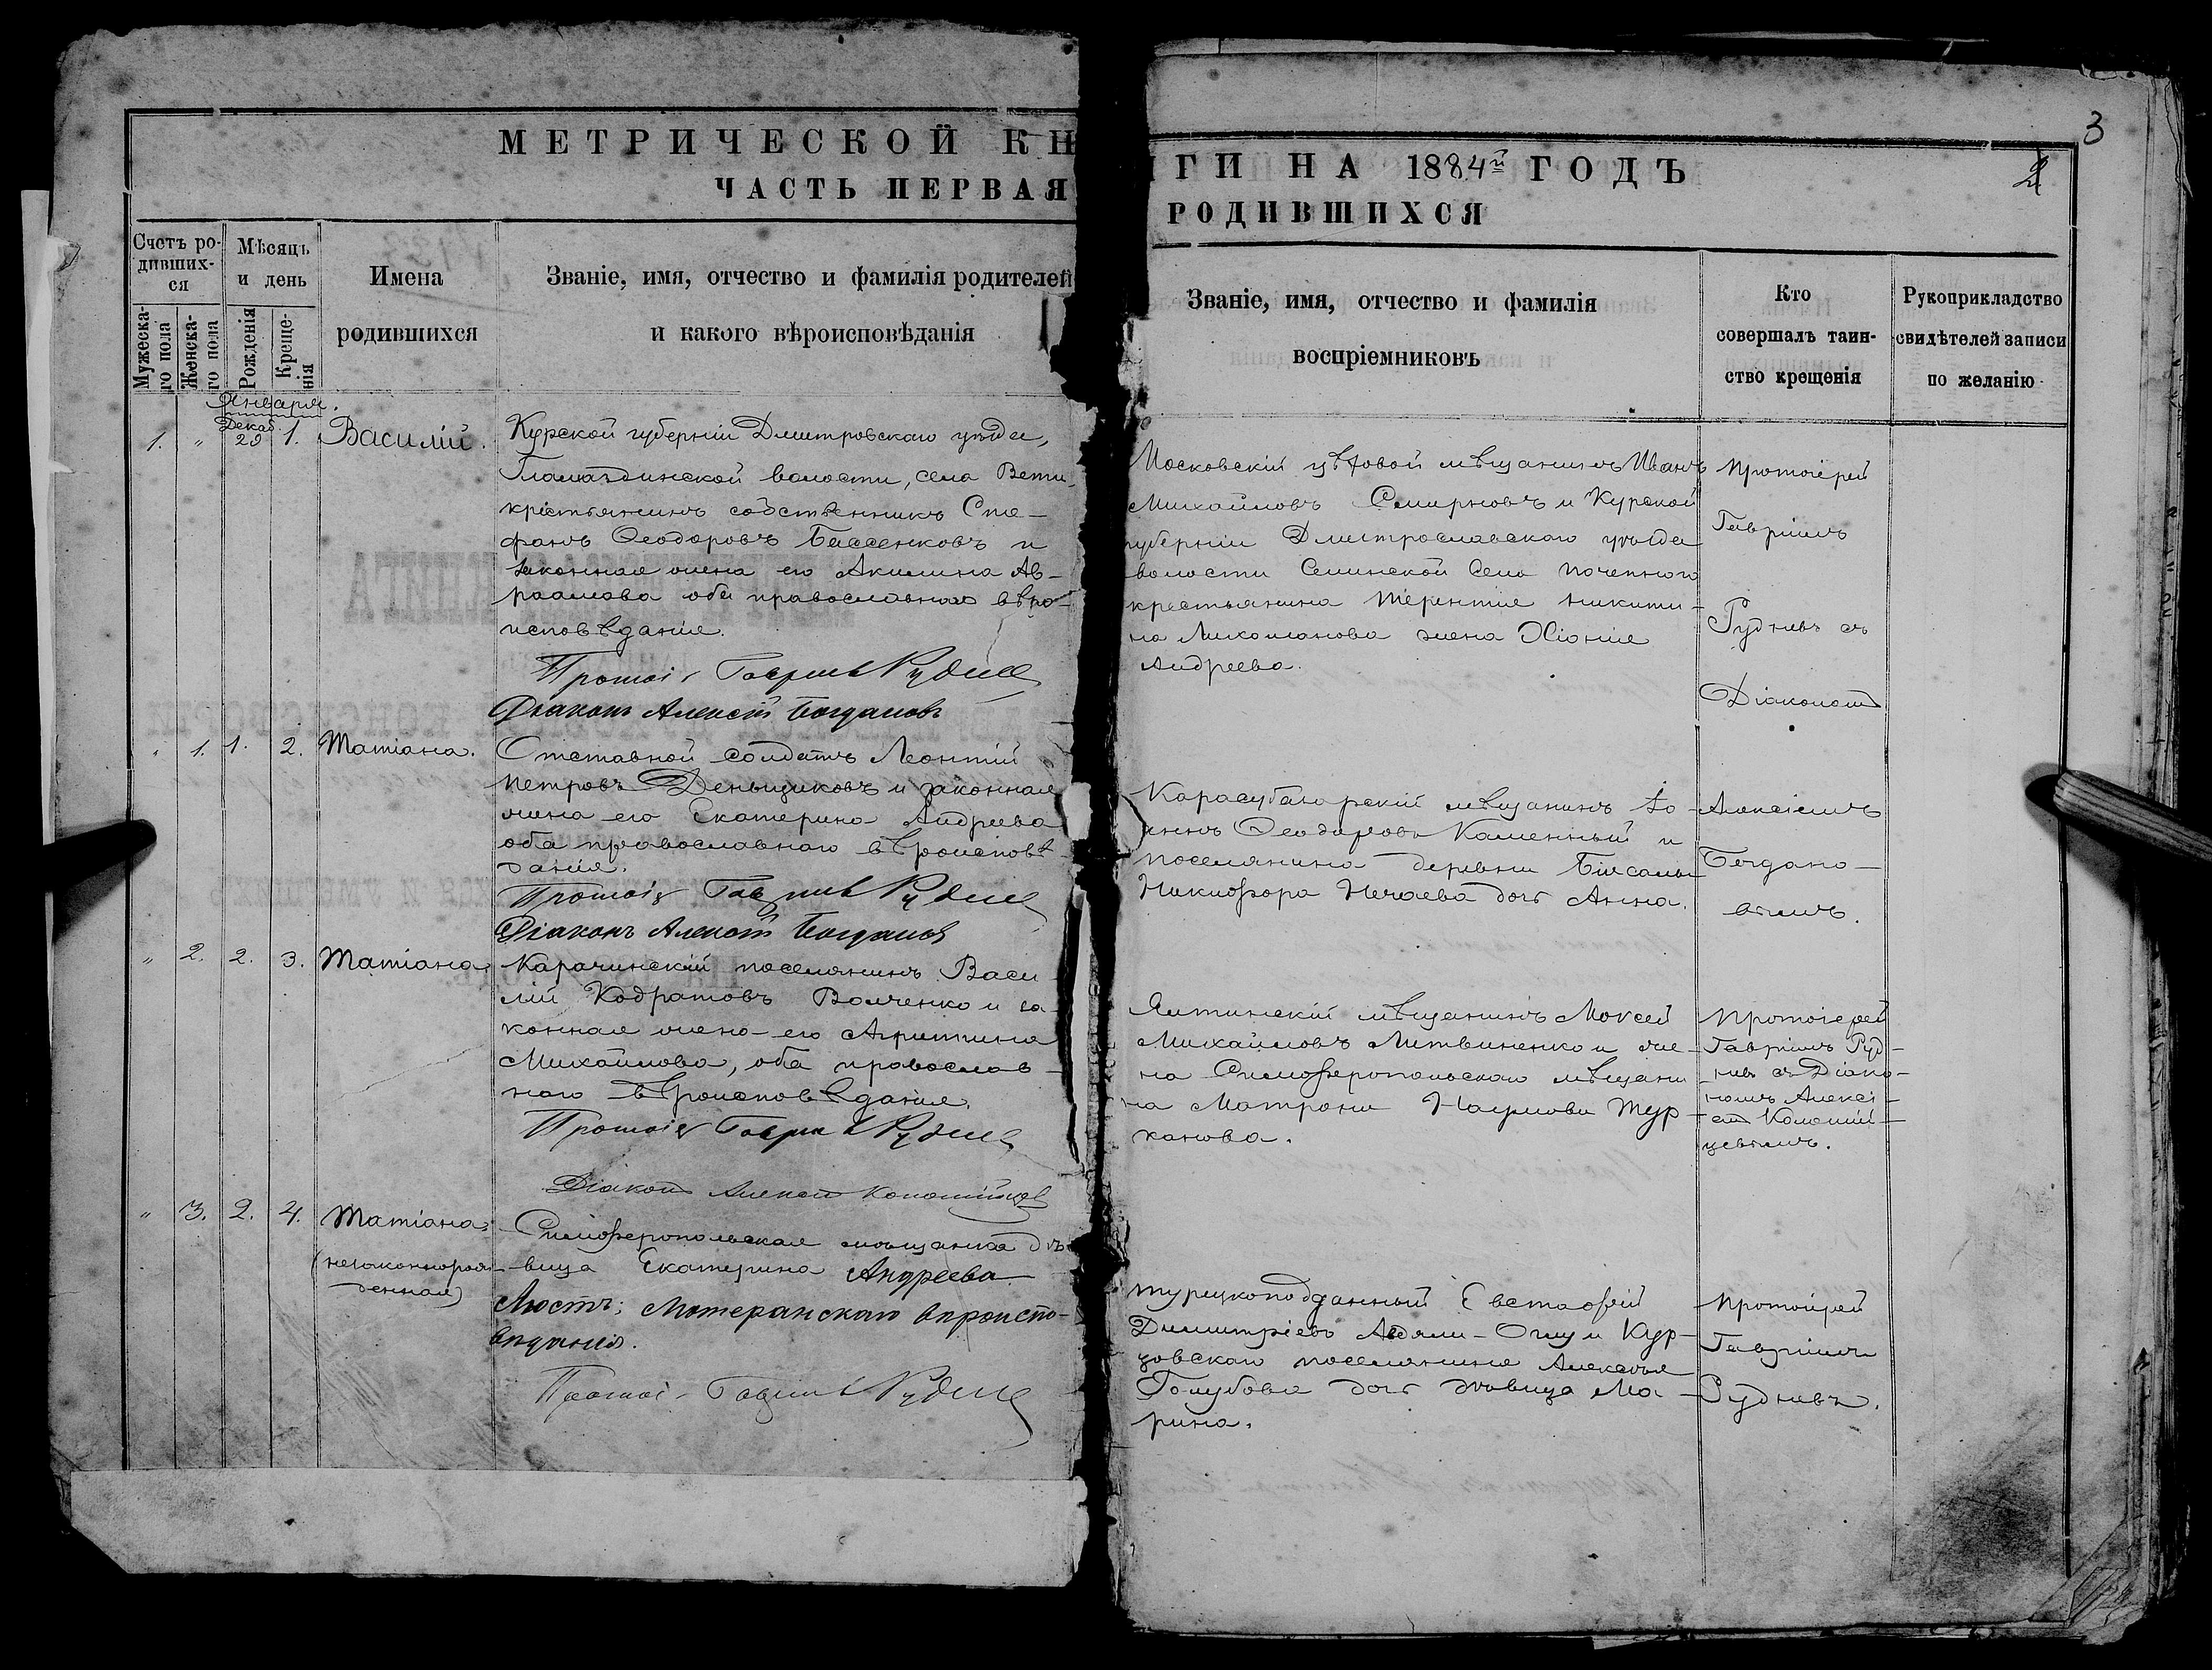 3
МЕТРИЧЕСКОЙ КН
ИГИ НА 1884й ГОДЪ
ЧАСТЬ ПЕРВАЯ
РОДИВШИХСЯ
Счетъ ро-
дивших-
ся
Мужеска-
го пола
Женска-
го пола
Мѣсяцъ
и день
Рожденія
Креще-
нія
Имена
родившихся
Званіе, имя, отчество и фамилія родителей
и какого вѣроисповѣданія
Званіе, имя, отчество и фамилія
воспріемниковъ
Кто
совершалъ таин-
ство крещенія
Рукоприкладство
свидѣтелей записи
по желанію
Января.
Декаб.
1. " 29 1. Василій.
Курской губерніи Дмитровскаго уѣзда,
волости, села
крестьянинъ собственникъ Сте-
фанъ Ѳеодоровъ Бассенковъ и
законная жена его Акилина Ав-
раамова оба православнаго вѣро-
исповѣданія.
Протоі Гавріилъ Рудневъ
Діаконъ Алексѣй Богдановъ
Московскій цѣховой мѣщанинъ Иванъ
Михайловъ Смирновъ и Курской
губерніи уѣзда
волости Село
крестьянина Терентія Никити-
на жена Хіонія
Андреева.
Протоіерей
Гавріилъ
Рудневъ съ
Діакономъ
" 1. 1. 2. Татіана.
Отставной солдатъ Леонтій
Петровъ Деньщиковъ и законная
жена его Екатерина Андреева
оба православнаго вѣроисповѣ-
данія.
Протоіер Гавріилъ Рудневъ
Діаконъ Алексѣй Богдановъ
Карасубазарскій мѣщанинъ Іо-
аннъ Ѳеодоровъ Каменный и
поселянина деревни
Никифора Нечаева дочь Анна.
Алексіемъ
Богдано-
вымъ.
" 2. 2. 3. Татіана.
Карачинскій поселянинъ Васи
лій Кодратовъ Волченко и за-
конная жена его Агриппина
Михайлова, оба православ-
наго вѣроисповѣданія.
Протоіер Гавріилъ Рудневъ
Діаконъ Алексѣй Коломійцевъ
Ялтинскій мѣщанинъ Моисей
Михайловъ Литвиненко и же-
на Симферопольскаго мѣщани
на Матрона Наумова Тур-
канова.
Протоіерей
Гавріилъ Руд-
невъ съ Діако-
номъ Алексі-
емъ Коломій-
цевымъ.
" 3. 2. 4. Татіана.
(незаконнорож-
денная)
Симферопольская мѣщанка дѣ-
вица Екатерина Андреева
Люстъ; Лютеранскаго вѣроиспо-
вѣданія.
Протоі Гавріилъ Рудневъ
Турецкоподданный Евстафій
Димитріевъ и Кур-
цовскаго поселянина Алексѣя
Голубова дочь дѣвица Ма-
рина.
Протоіерей
Гавріилъ
Рудневъ.